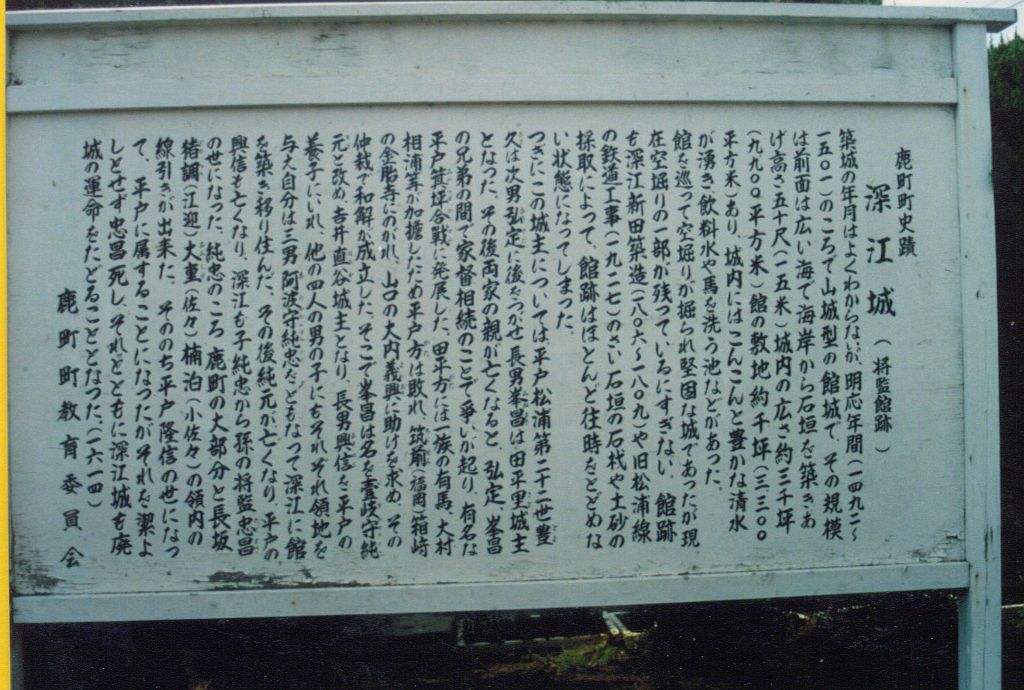 鹿町町史蹟
深江城（将監館跡）
築城の年月はよくわからないが、明応年間（一四九二～
一五〇一）のころで山城型の館城で、その規模
は前面は広い海で海岸から石垣を築きあ
げ高さ五十尺（一五米）城内の広さ約三千坪
（九九〇〇平方米）館の敷地約千坪（三三〇〇
平方米）あり、城内にはこんこんと豊かな清水
が湧き飲料水や馬を洗う池などがあった。
館を巡って空堀りが掘られ堅固な城であったが現
在空堀りの一部が残っているにすぎない。館跡
も深江新田築造（一八〇六～一八〇九）や旧松浦線
の鉄道工事（一九二七）のさい石垣の石材や土砂の
採取によって、館跡はほとんど往時をとどめな
い状態になってしまった。
つぎにこの城主については、平戸松浦第二十二世豊
久は次男弘定に後をつがせ長男峯昌は田平里城主
となった。その後両家の親が亡くなると、弘定、峯昌
の兄弟の間で家督相続のことで争いが起り、有名な
平戸箕坪合戦に発展した。田平方には一族の有馬、大村
相浦等が加擔したため平戸方は敗れ、筑前福岡箱崎
の金胎寺にのがれ、山口の大内義興に助けを求め、その
仲裁で和解が成立した。そこで峯昌は名を壹岐守純
元と改め、吉井直谷城主となり、長男興信を平戸の
養子にいれ、他の四人の男の子にもそれぞれ領地を
与え自分は三男阿波守純忠をともなって深江に館
を築き移り住んだ。その後純元が亡くなり、平戸の
興信も亡くなり、深江も子純忠から孫の将監忠昌
の世になった。純忠のころ鹿町の大部分と長坂
猪調（江迎）大童（佐々）楠泊（小佐々）の領内の
線引きが出来た。そののち平戸隆信の世になっ
て、平戸に属することになったがそれを潔よ
しとせず忠昌死し、それとともに深江城も廃
城の運命をたどることとなった。（一六一四）
鹿町町教育委員会